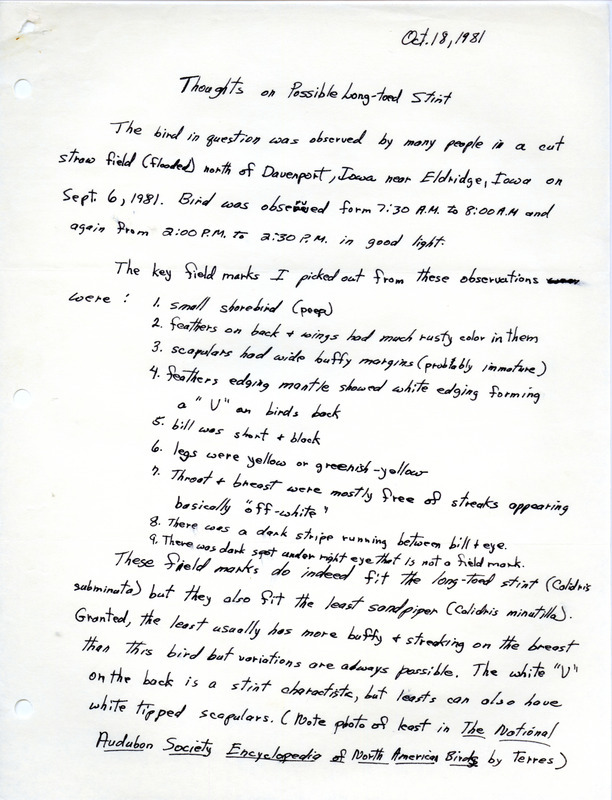 Oct. 18, 1981
Thoughts on Possible Long-toed Stint
The bird in question was observed by many people in a cut
straw field (flooded) north of Davenport, Iowa near Eldridge, Iowa on
Sept. 6, 1981. Bird was observed form 7:30 A.M. to 8:00 A.M and
again from 2:00 P.M. to 2:30 P.M. in good light.
The key field marks I picked out from these observations
were:
1. small shorebird (peep)
2. feathers on back + wings had much rusty color in them
3. scapulars had wide buffy margins (probably immature)
4. feathers edging mantle showed white edging forming
a "V" on birds back
5. bill was short + black
6. legs were yellow or greenish-yellow
7. Throat + breast were mostly free of streaks appearing
basically "off-white"
8. There was a dark stripe running between bill + eye.
9. There was dark spot under right eye that is not a field mark.
These field marks do indeed fit the long-toed stint (Calidris
subminuta) but they also fit the least sandpiper (Calidris minutilla).
Granted, the least usually has more buffy + streaking on the breast
than this bird but variations are always possible. The white "V"
on the back is a stint charactistic, but leasts can also have
white tipped scapulars. (Note photo of least in The National
Audubon Society Encyclopedia of North American Birds by Terres)